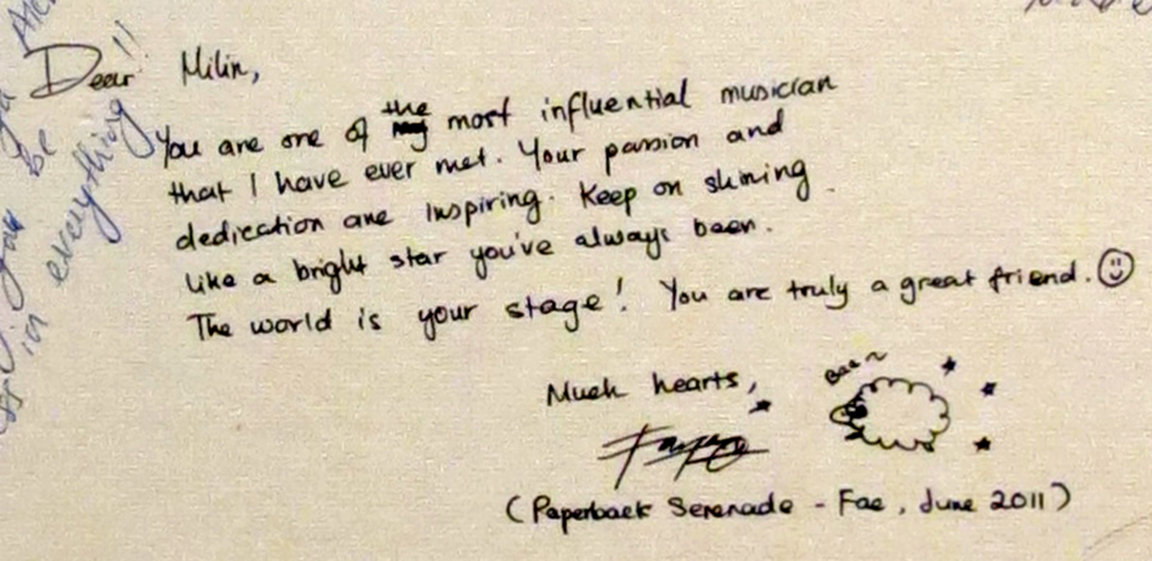 Dear Milin,
You are one of the most influential musician
that I have ever met. Your passion and
dedication are inspiring. Keep on shining
like a bright star you've always been.
The world is your stage! You are truly a great friend.
Much hearts,
Baa~
(Paperback Serenade - Fae, June 2011)
be
in everything!!